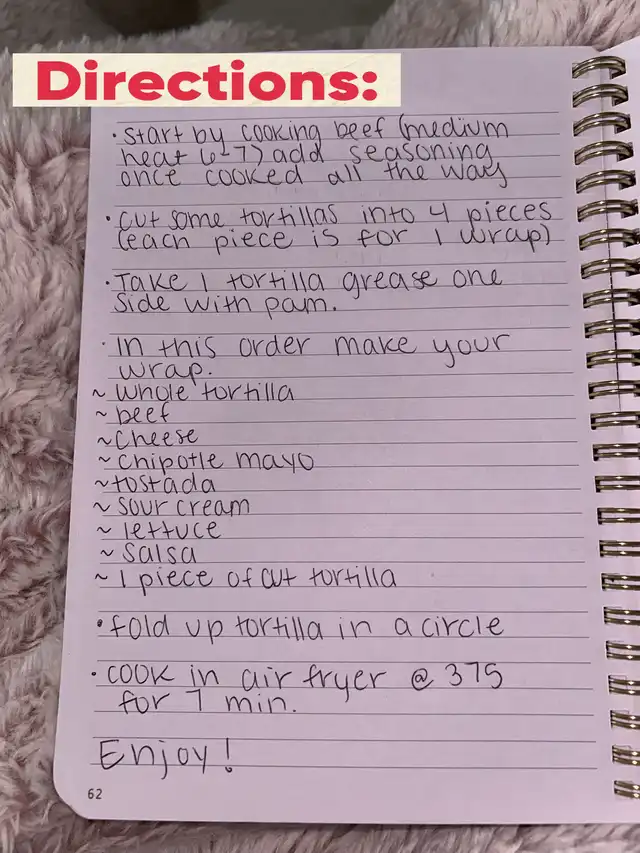 Directions:
• Start by cooking beef (medium
heat 6-7) add seasoning
once cooked all the way
• cut some tortillas into 4 pieces
(each piece is for 1 wrap)
• Take 1 tortilla grease one
side with pam.
• In this order make your
wrap.
~ whole tortilla
~ beef
~ cheese
~ chipotle mayo
~ tostada
~ sour cream
~ lettuce
~ salsa
~ 1 piece of cut tortilla
• fold up tortilla in a circle
• cook in air fryer @ 375
for 7 min.
Enjoy!
62